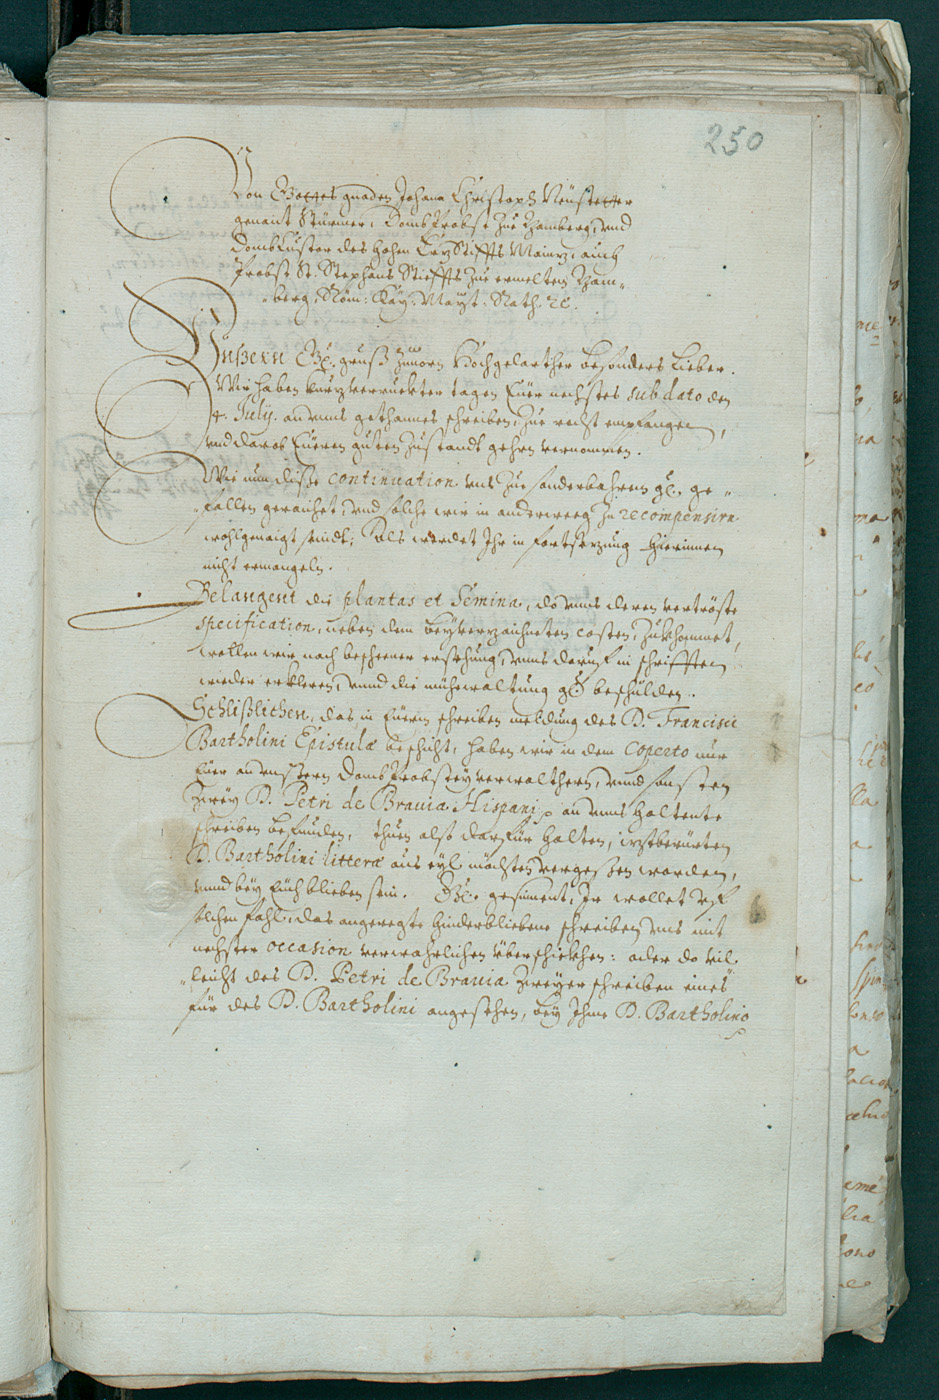 250
Von Gottes gnaden Johann Christoph Neüstetter
genant Stürmer, Dombprobst zue Bamberg, vnd
Dombcuster des hohen ErzStiffts Mainz, auch
Probst St. Stephans Stieffts zue ermelten Bam-
berg, Röm: Kay: Mayt: Rath. ꝛc.
Vnßern Gl. grueß zuuorn Hochgelarther besonders Lieber.
Wir haben kurz verruckter tagen Euer nechstes sub dato den
4. July. an vnns gethannes schreiben, zue recht empfangen,
vnd darob Eueren guten zustandt gehrn vernommen.
Wie nun diße continuation vns zue sonderbahrem gl. ge-
fallen geraichet, vnd solche wir in anderweeg zu recompensirn
wohlgenaigt seindt; Als werdet Ihr in fortsezung hierinnen
nicht ermangeln.
Belangent die plantas et Semina, do vnns deren vertröste
specification, neben dem beyverzaichneten costen, zukhommet,
wollen wir nach beschener ersehung, vnns darauf in schrifften
wieder erkleren, vnnd die mühewaltung gl. beschulden.
Schlißlichen, das in Euerm schreiben meldung des D. Francisci
Bartholini Epistulæ beschicht, haben wir in dem Coperto nur
Euer an vnssern Dombprobstey verwalthern, vnnd sonsten
zwey D. Petri de Brauia Hispani, an vnns haltente
schreiben befunden, thuen also darfür halten, iezt berürten
D. Bartholini litteræ aus eyl möchten vergeßen worden,
vnnd bey Euch blieben sein. Gl. gesinnent, Ir wollet vf
solchen fahl, das angeregte hinderbliebene schreiben vns mit
nechster occasion verwahrlichen überschickhen: oder do vil-
leicht des D. Petri de Brauia zweyer schreiben eines
für des D. Bartholini angesehen, bey Ihme D. Bartholino